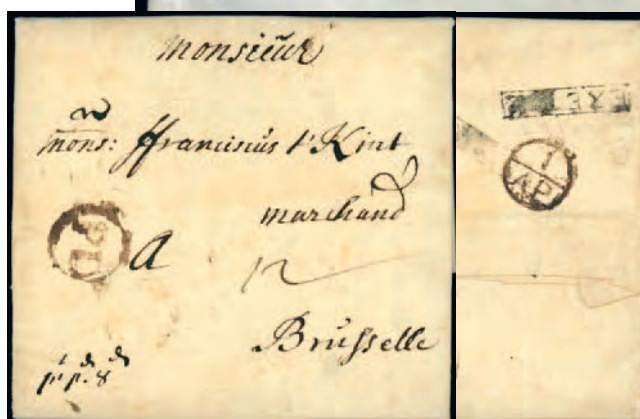 Monsieur
Mons: ffranciscus t'Kint
marchand
PD
a
Brusselle
1
AP